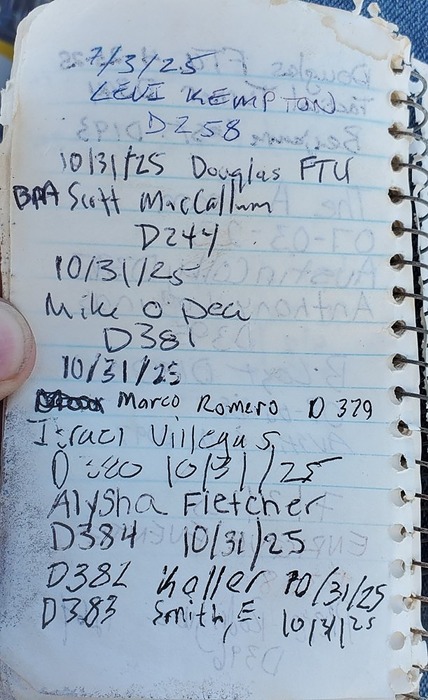 7/3/25
LEVI KEMPTON
D258
10/31/25 Douglas FTU
BPA Scott MacCallum
D244
10/31/25
Mike O Dea
D381
10/31/25
Marco Romero D 379
Israel Villegas
10/31/25
Alysha Fletcher
D384 10/31/25
D382 Kaller 10/31/25
D383 Smith, E. 10/31/25